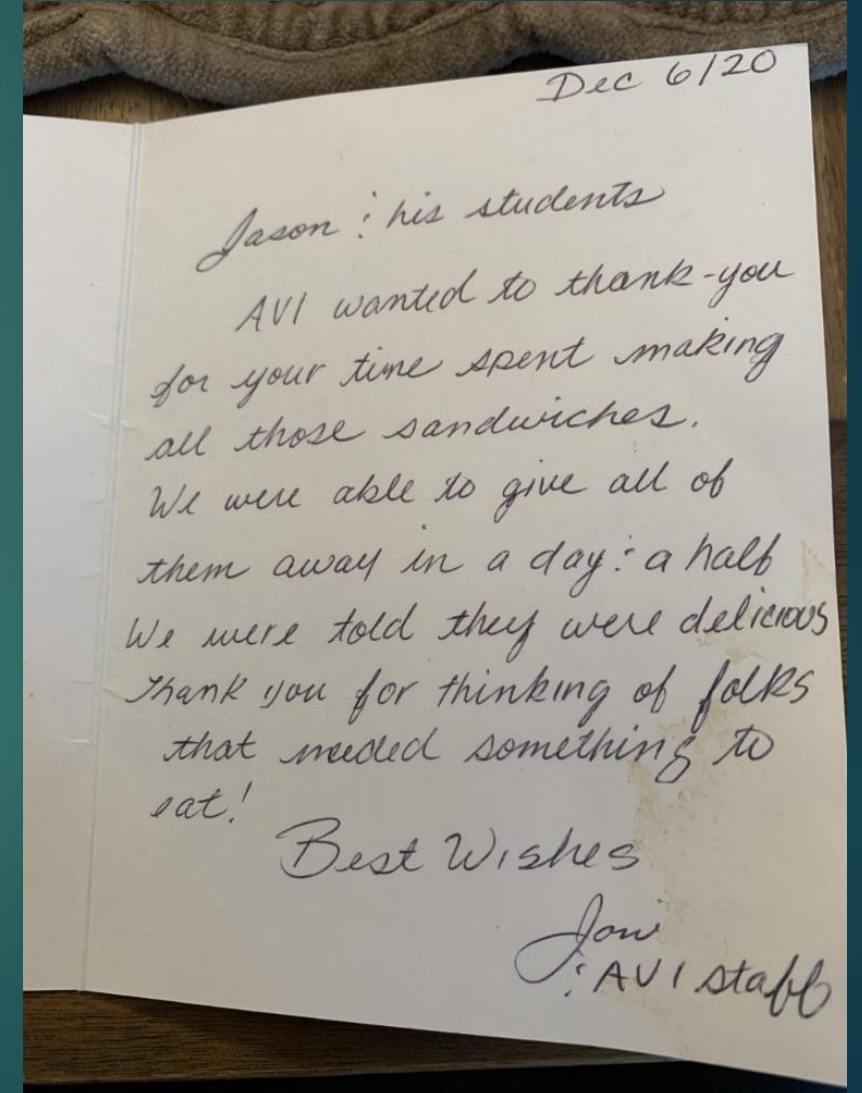 Dec 6/20
Jason & his students
AVI wanted to thank-you
for your time spent making
all those sandwiches.
We were able to give all of
them away in a day & a half
We were told they were delicious
Thank you for thinking of folks
that needed something to
eat!
Best Wishes
Joni
& AVI staff